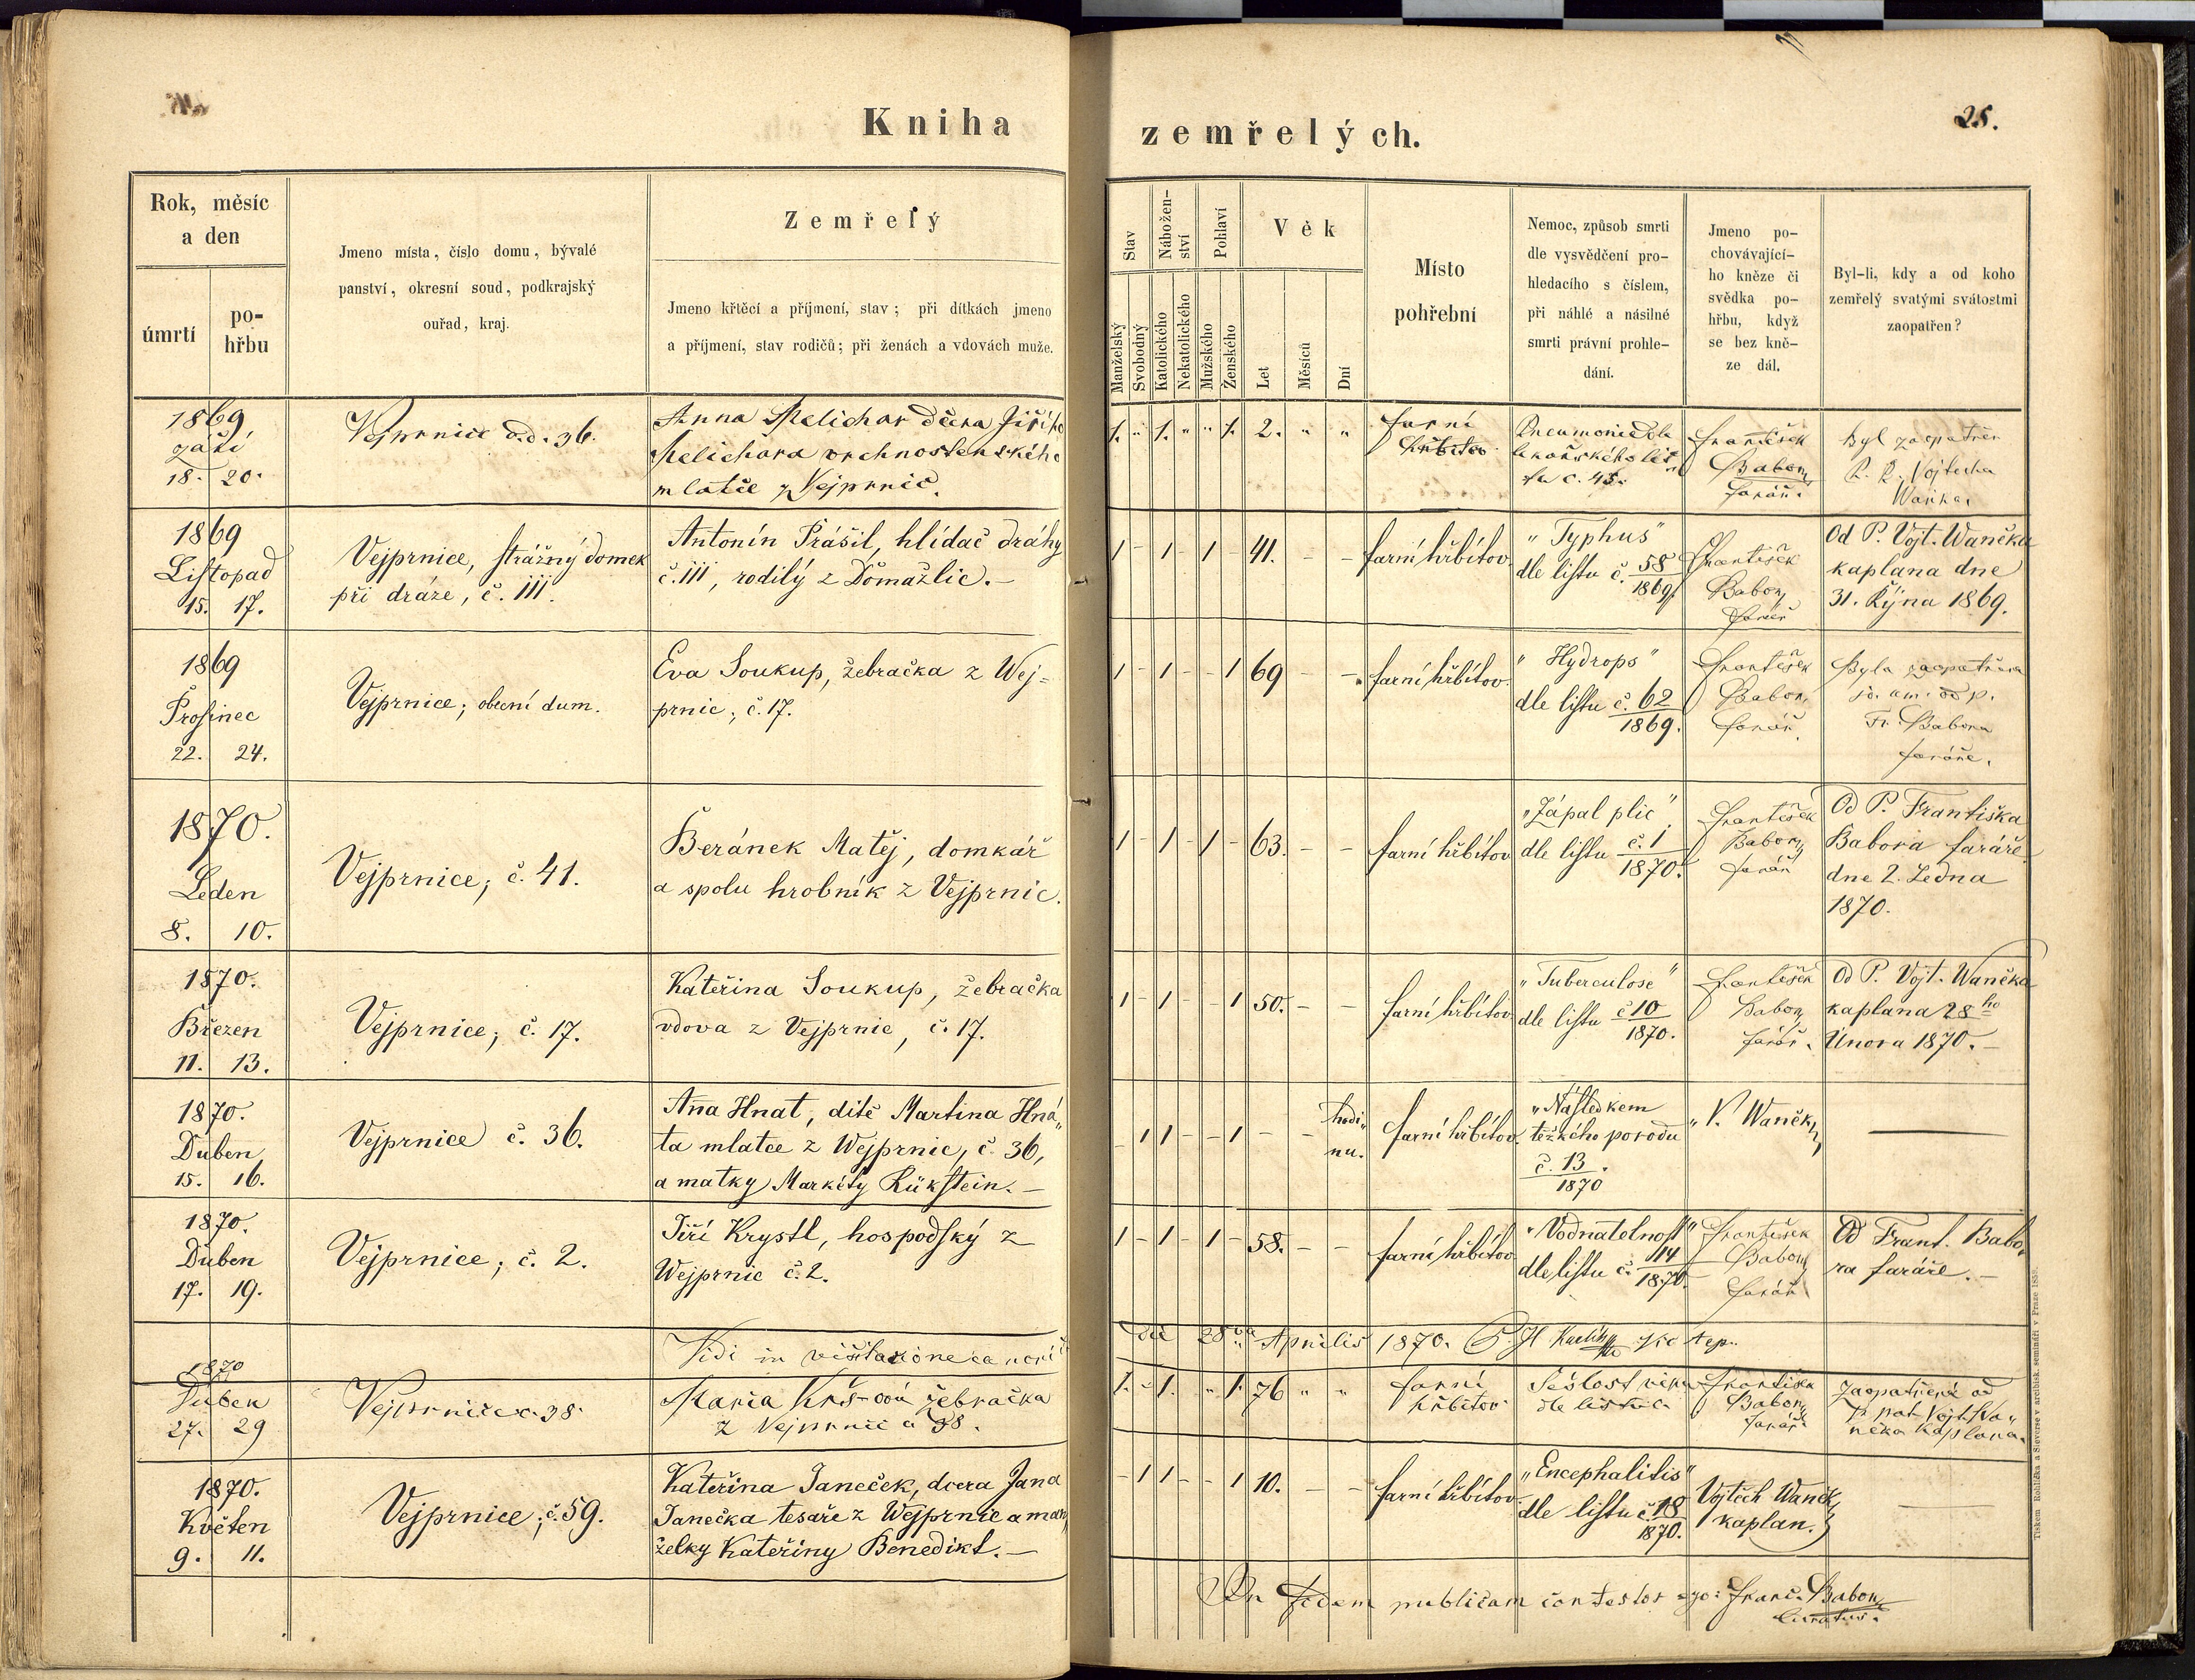 Kniha
zemřelých.
25.
Rok, měsíc
a den
úmrtí
po-
hřbu
Jmeno místa, číslo domu, bývalé
panství, okresní soud, podkrajský
ouřad, kraj.
Zemřelý
Jmeno křtěcí a příjmení, stav; při dítkách jmeno
a příjmení, stav rodičů; při ženách a vdovách muže.
Stav
Manželský
Svobodný
Nábožen-
ství
Katolického
Nekatolického
Pohlaví
Mužského
Ženského
Věk
Let
Měsíců
Dní
Místo
pohřební
Nemoc, způsob smrti
dle vysvědčení pro-
hledacího s číslem,
při náhlé a násilné
smrti právní prohle-
dání.
Jmeno po-
chovávající-
ho kněze či
svědka po-
hřbu, když
se bez kně-
ze dál.
Byl-li, kdy a od koho
zemřelý svatými svátostmi
zaopatřen?
1869
září
18. 20.
Vejprnice č.d. 36.
Anna Melichar dcera Jiřího
Melichara vrchnostenského
mlatce z Vejprnic.
1. " 1. " " 1. 2. " "
farní
hřbitov
Pneumonie dle
lékařského lis-
tu č. 45.
František
Babor,
farář.
Byl zaopatřen
Vojtecha
Waňka.
1869
Listopad
15. 17.
Vejprnice, strážný domek
při dráze, č. 111.
Antonín Prášil, hlídač dráhy
č. 111, rodilý z Domažlic.—
1 - 1 - 1 - 41. - -
farní hřbitov.
"Typhus"
dle listu č. 58
1869.
František
Babor,
farář
Od P. Vojt. Waněka
kaplana dne
31. Října 1869.
1869
Prosinec
22. 24.
Vejprnice; obecní dum.
Eva Soukup, žebračka z Wej=
prnic; č. 17.
1 - 1 - - 1 69 - -
farní hřbitov.
"Hydrops"
dle listu č. 62
1869.
František
Babor,
farář.
Byla zaopatřena
od p.
Fr. Babora
faráře.
1870.
Leden
8. 10.
Vejprnice; č. 41.
Beránek Matěj, domkář
a spolu hrobník z Vejprnic.
1 - 1 - 1 - 63. - -
farní hřbitov
"Zápal plic"
dle listu č. 1
1870.
František
Babor,
farář
Od P. Františka
Babora faráře
dne 2. Ledna
1870.
1870.
Březen
11. 13.
Vejprnice; č. 17.
Kateřina Soukup, žebračka
vdova z Vejprnic, č. 17.
1 - 1 - - 1 50. - -
farní hřbitov
"Tuberculose"
dle listu č 10
1870.
František
Babor,
farář.
Od P. Vojt. Waněka
kaplana 28ho
Února 1870.—
1870.
Duben
15. 16.
Vejprnice č. 36.
Anna Hnat, dítě Martina Hná„
ta mlatce z Wejprnic, č. 36,
a matky Markéty Rükstein.—
- 1 1 - - 1 - - hodi„
nu.
farní hřbitov.
"Následkem
težkého porodu
č. 13.
1870
"V. Waněk,
1870.
Duben
17. 19.
Vejprnice; č. 2.
Jiří Krystl, hospodský z
Wejprnic č. 2.
1 - 1 - 1 - 58. - -
farní hřbitov
"Vodnatelnost"
dle listu č. 14
1870.
František
Babor,
farář
Od Frant. Babo„
ra faráře.—
Vidi in visitatione canoni
die 28va Aprilis 1870.
1870
Duben
27. 29
Vejprnice č. 38.
Maria Krš-ová žebračka
z Vejprnic č 38.
1. - 1. " 1. 76 " "
farní
hřbitov
Sešlost věku
dle listu č.
Františka
Babor,
farář
Zaopatřená od
P. pat. Vojt. Wa„
něka kaplana.
1870.
Květen
9. 11.
Vejprnice; č. 59.
Kateřina Janeček, dcera Jana
Janečka tesaře z Wejprnic a man„
želky Kateřiny Benedikt.—
- 1 1 - - 1 10. - -
farní hřbitov.
"Encephalitis"
dle listu č. 18
1870.
Vojtěch Waněk,
kaplan.
In fidem publicam contestor ego: Franc. Babor,
curatus.
Tiskem Rohlíčka a Sieverse v arcibisk. semináři v Praze 1858.